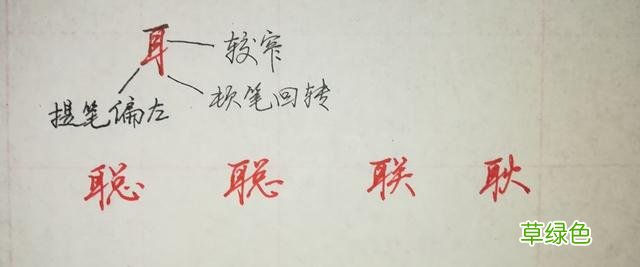 耳
较窄
提笔偏左
顿笔回转
聪 聪 联 耿
草绿色